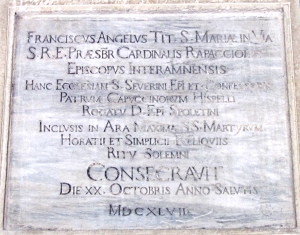 FRANCISCVS ANGELVS TIT. S. MARIÆ IN VIA
S. R. E. PRÆSBR CARDINALIS RAPACCIOLVS
EPISCOPVS INTERAMNENSIS
HANC ECCLESIAM S. SEVERINI EPI ET CONFESSORIS
PATRVM CAPVCCINORVM HISPELLI
ROGATV D. EPI SPOLETINI
INCLVSIS IN ARA MAXIMA S. S. MARTYRVM
HORATII ET SIMPLICII RELIQVIIS
RITV SOLEMNI
CONSECRAVIT
DIE XX. OCTOBRIS ANNO SALVTIS
MDCXLVII